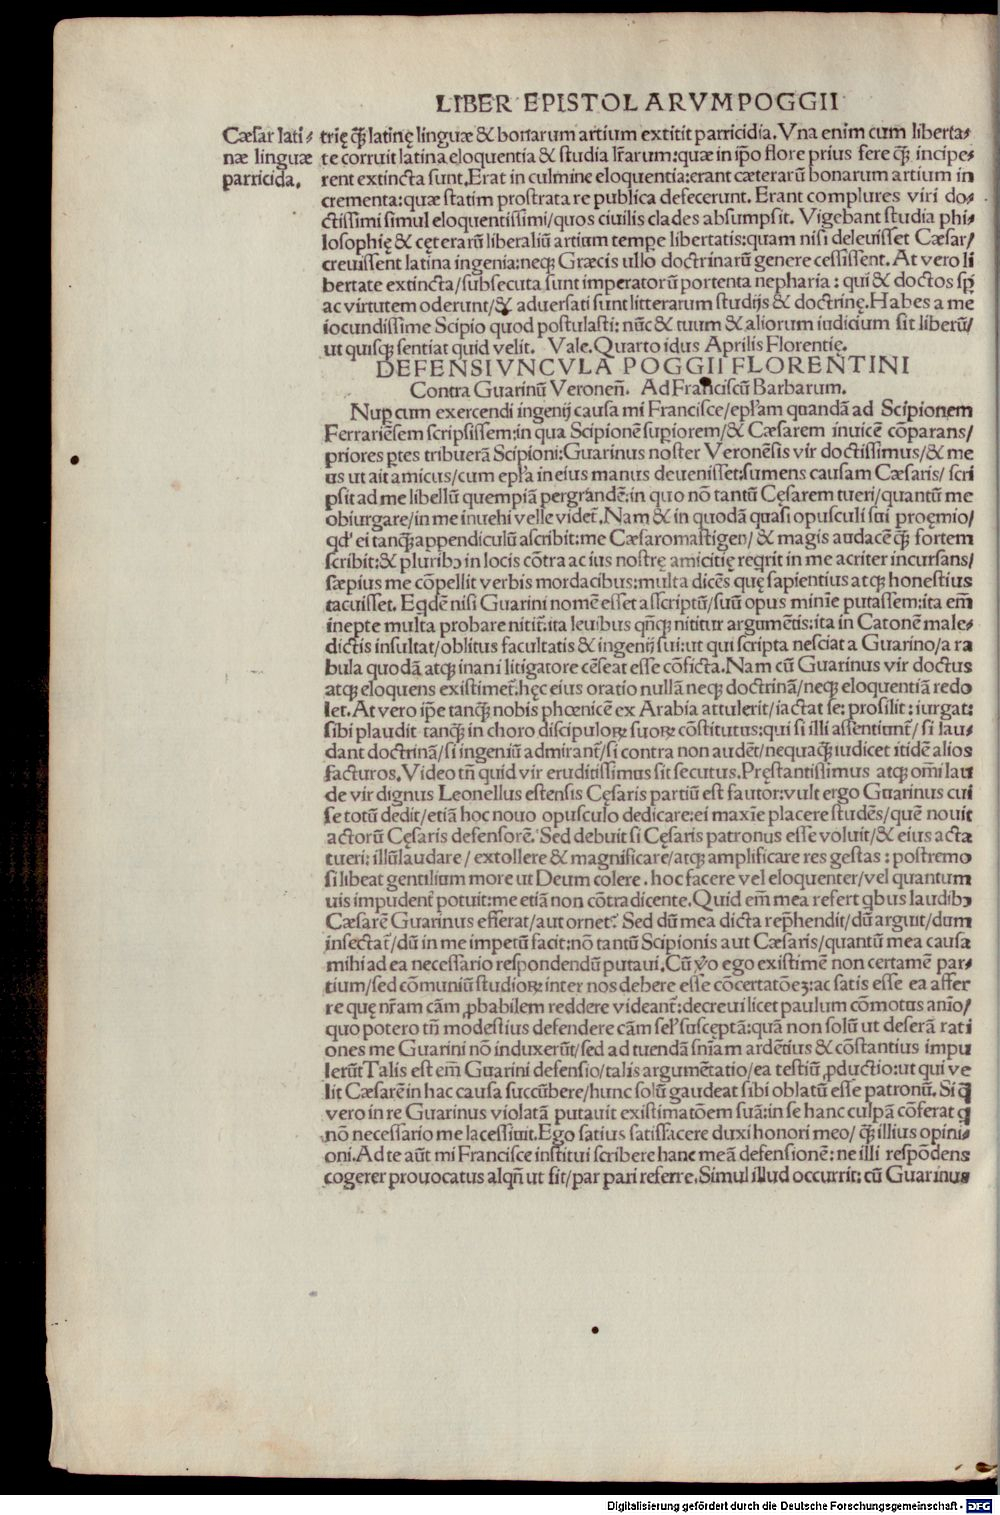 LIBER EPISTOLARVM POGGII
Cæsar lati-
næ linguæ
parricida.
trię q̃ȝ latinę linguæ & bonarum artium extitit parricidia. Vna enim cum liberta-
te corruit latina eloquentia & studia lr̃arum: quæ in ip̃o flore prius fere q̃ȝ incipe-
rent extincta sunt. Erat in culmine eloquentia: erant cæterarũ bonarum artium in
crementa: quæ statim prostrata re publica defecerunt. Erant complures viri do-
ctissimi simul eloquentissimi/ quos ciuilis clades absumpsit. Vigebant studia phi-
losophię & cęterarũ liberaliũ artium tempe libertatis: quam nisi deleuisset Cæsar/
creuissent latina ingenia: neqȝ Græcis ullo doctrinarũ genere cessissent. At vero li
bertate extincta/ subsecuta sunt imperatorũ portenta nepharia: qui & doctos sp̃
ac virtutem oderunt/ & aduersati sunt litterarum studijs & doctrinę. Habes a me
iocundissime Scipio quod postulasti: nũc & tuum & aliorum iudicium sit liberũ/
ut quisqȝ sentiat quid velit. Vale. Quarto idus Aprilis Florentię.
DEFENSIVNCVLA POGGII FLORENTINI
Contra Guarinũ Veroneñ. Ad Franciscũ Barbarum.
Nuꝑ cum exercendi ingenij causa mi Francisce/ epl̃am quandã ad Scipionem
Ferrariẽsem scripsissem: in qua Scipionẽ suꝑiorem/ & Cæsarem inuicẽ cõparans/
priores ꝑtes tribuerã Scipioni: Guarinus noster Veronẽsis vir doctissimus/ & me
us ut ait amicus/ cum epl̃a in eius manus deuenisset: sumens causam Cæsaris/ scri
psit ad me libellũ quempiã pergrãdẽ: in quo nõ tantũ Cęsarem tueri/ quantũ me
obiurgare/ in me inuehi velle videt̃. Nam & in quodã quasi opusculi sui proęmio/
qd' ei tanqȝ appendiculũ ascribit: me Cæsaromastigen/ & magis audacẽ q̃ȝ fortem
scribit: & pluribꝯ in locis cõtra ac ius nostrę amicitię reqrit in me acriter incursans/
sæpius me cõpellit verbis mordacibus: multa dicẽs quę sapientius atqȝ honestius
tacuisset. Eqdẽ nisi Guarini nomẽ esset asscriptũ/ suũ opus minĩe putassem: ita em̃
inepte multa probare nitit̃: ita leuibus qñqȝ nititur argumẽtis: ita in Catonẽ male-
dictis insultat/ oblitus facultatis & ingenij sui: ut qui scripta nesciat a Guarino/ a ra
bula quodã atqȝ inani litigatore cẽseat esse cõficta. Nam cũ Guarinus vir doctus
atqȝ eloquens existimet̃: hęc eius oratio nullã neqȝ doctrinã/ neqȝ eloquentiã redo
let. At vero ip̃e tanqȝ nobis phœnicẽ ex Arabia attulerit/ iactat se: prosilit: iurgat:
sibi plaudit tanqȝ in choro discipuloꝝ suoꝝ cõstitutus: qui si illi assentiunt̃/ si lau-
dant doctrinã/ si ingeniũ admirant̃/ si contra non audẽt/ nequaqȝ iudicet itidẽ alios
facturos. Video tñ quid vir eruditissimus sit secutus. Pręstantissimus atqȝ om̃i lau
de vir dignus Leonellus estensis Cęsaris partiũ est fautor: vult ergo Guarinus cui
se totũ dedit/ etiã hoc nouo opusculo dedicare: ei maxĩe placere studẽs/ quẽ nouit
actorũ Cęsaris defensorẽ. Sed debuit si Cęsaris patronus esse voluit/ & eius acta
tueri: illũ laudare/ extollere & magnificare/ atqȝ amplificare res gestas: postremo
si libeat gentilium more ut Deum colere. hoc facere vel eloquenter/ vel quantum
uis impudent̃ potuit: me etiã non cõtradicente. Quid em̃ mea refert qbus laudibꝯ
Cæsarẽ Guarinus efferat/ aut ornet? Sed dũ mea dicta rep̃hendit/ dũ arguit/ dum
insectat̃/ dũ in me impetũ facit: nõ tantũ Scipionis aut Cæsaris/ quantũ mea causa
mihi ad ea necessario respondendũ putaui. Cũ ṽo ego existimẽ non certamẽ par-
tium/ sed cõmuniũ studioꝝ inter nos debere esse cõcertatõeȝ: ac satis esse ea affer
re quę nr̃am cãm ꝓbabilem reddere videant̃: decreui licet paulum cõmotus anĩo/
quo potero tñ modestius defendere cãm sel' susceptã: quã non solũ ut deserã rati
ones me Guarini nõ induxerũt/ sed ad tuendã sñiam ardẽtius & cõstantius impu
lerũt Talis est em̃ Guarini defensio/ talis argumẽtatio/ ea testiũ ꝓductio: ut qui ve
lit Cæsarẽ in hac causa succũbere/ hunc solũ gaudeat sibi oblatũ esse patronũ. Si q̃
vero in re Guarinus violatã putauit existimatõem suã: in se hanc culpã cõferat q
nõ necessario me lacessiuit. Ego satius satisfacere duxi honori meo/ q̃ȝ illius opini-
oni. Ad te aũt mi Francisce institui scribere hanc meã defensionẽ: ne illi respõdens
cogerer prouocatus alqñ ut fit/ par pari referre. Simul illud occurrit: cũ Guarinus
Digitalisierung gefördert durch die Deutsche Forschungsgemeinschaft - DFG